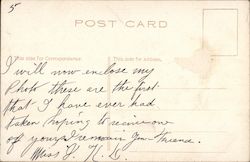 5
POST CARD
This side for Correspondence This side for Address.
I will now enclose my
Photo these are the first
that I have ever had
taken hoping to receive one
of yours I remain your friend.
Miss